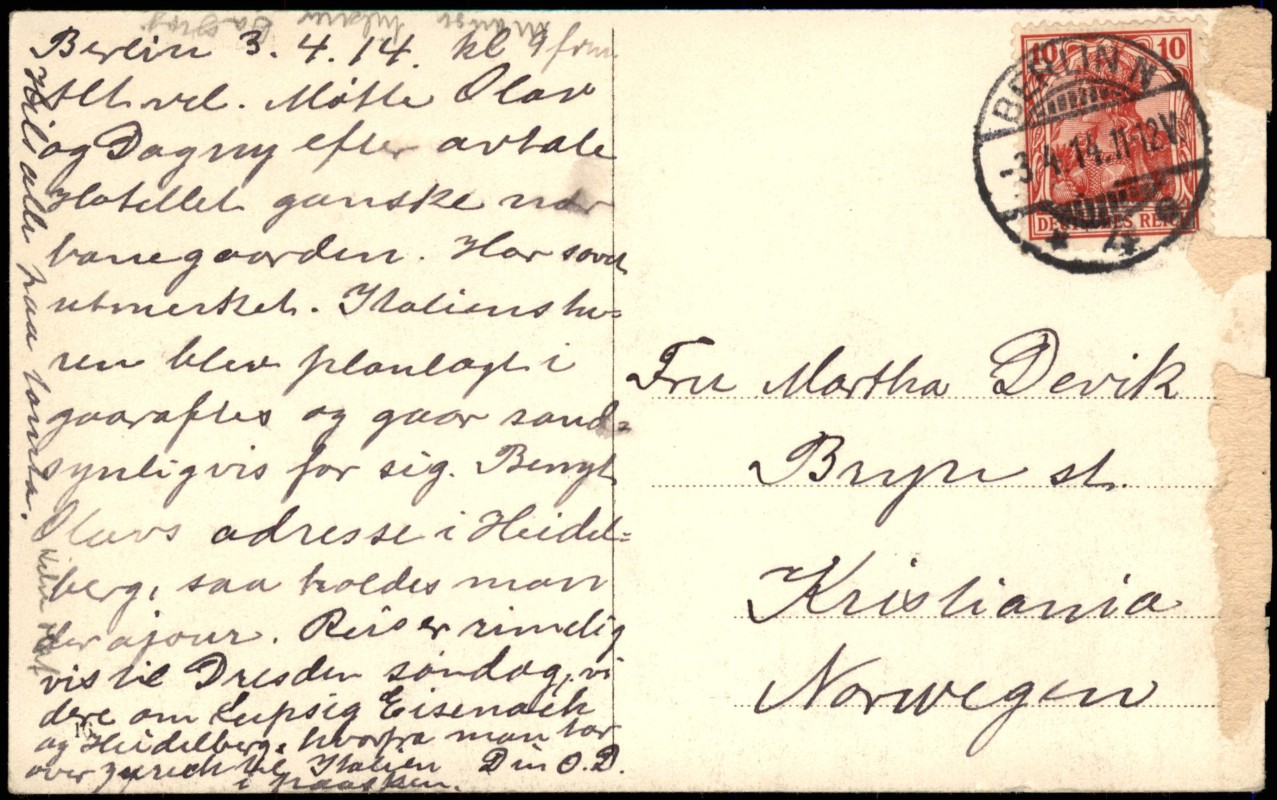 Berlin 3. 4. 14. kl 9 frm
Alt vel. Møtte Olav
og Dagny efter avtale
Hotellet ganske nær
banegaarden. Har sovet
utmerket. Italienstu=
ren blev planlagt i
gaaraftes og gaar sand=
synligvis for sig. Benyt
Olavs adresse i Heidel=
berg, saa holdes man
der ajour. Reiser rimelig
vis til Dresden søndag, vi
dere om Leipsig Eisenach
og Heidelberg, hvorfra man tar
over Zyrich til Italien Din O.D.
i paasken.
Hils alle paa tomta.
10 10
DEUTSCHES REICH
BERLIN N
-3.4.14.11-12V.
* 4 e
Fru Martha Devik
Bryn st.
Kristiania
Norwegen
16